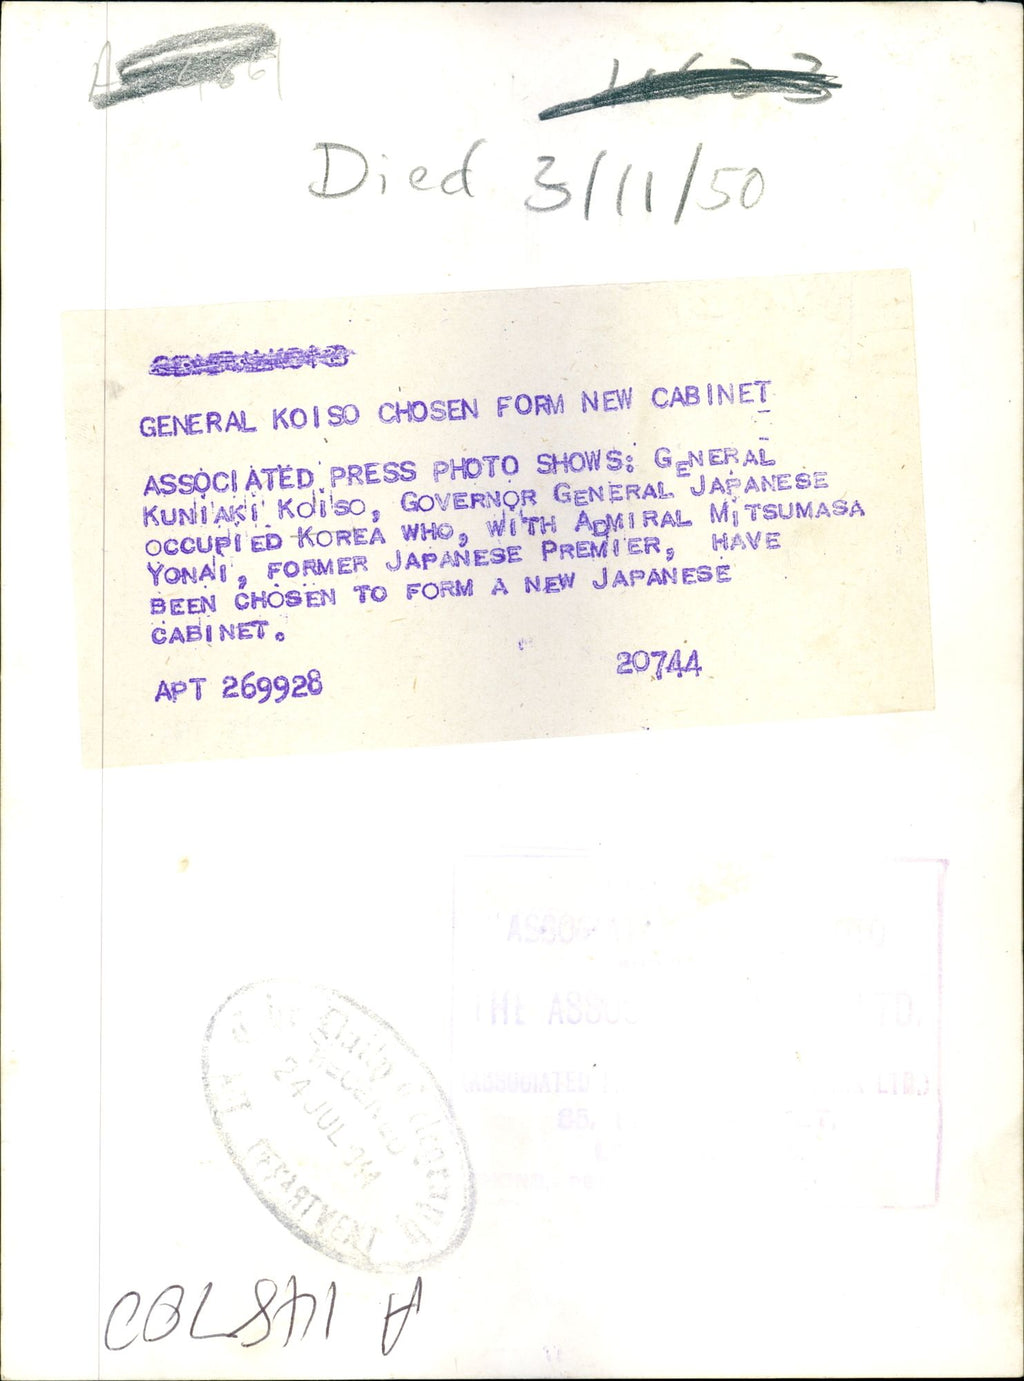 Died 3/11/50
GENERAL KOISO CHOSEN FORM NEW CABINET
ASSOCIATED PRESS PHOTO SHOWS: GENERAL
KUNIAKI KOISO, GOVERNOR GENERAL JAPANESE
OCCUPIED KOREA WHO, WITH ADMIRAL MITSUMASA
YONAI, FORMER JAPANESE PREMIER, HAVE
BEEN CHOSEN TO FORM A NEW JAPANESE
CABINET.
APT 269928 20744
THE
LTD.
ASSOCIATED
85,
The Daily Herald
RECEIVED
24 JUL
ART DEPARTMENT